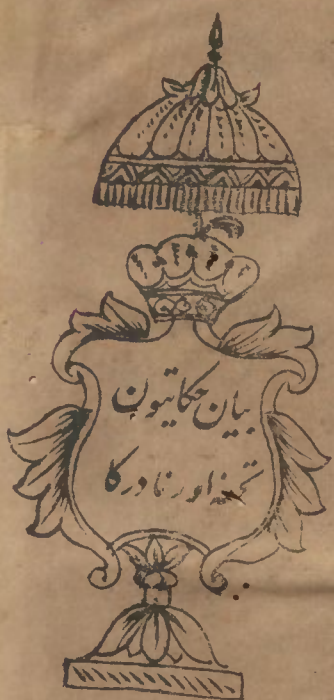 بیان حکایتیون
تحفہ اور نادر کا